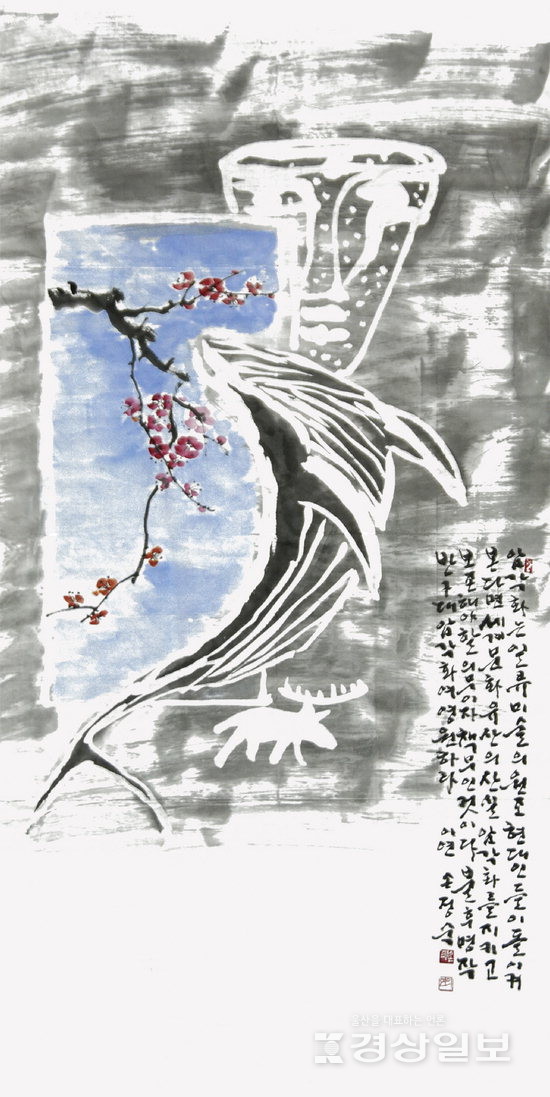 암각화는 인류미술의 원조 현대인들이 돌이켜
본다면 세계문화유산의 산실 암각화를 지키고
보존해야할 의무이자 책무인 것이다 불후 명작
반구대암각화여 영원하라
이연 손정숙
울산을 대표하는 신문
경상일보